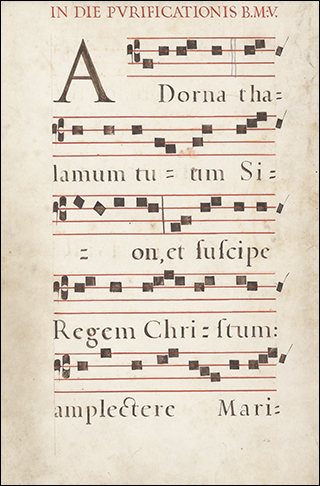 IN DIE PVRIFICATIONIS B.M.V.
ADorna tha=
lamum tu= um Si=
= on, et ſuſcipe
Regem Chri=ſtum:
amplectere Mari=